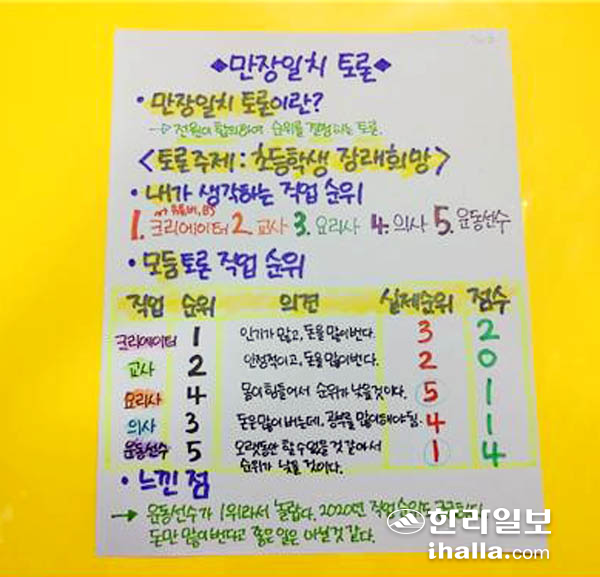 ◆만장일치 토론◆
• 만장일치 토론이란?
→ 전원이 합의하여 순위를 결정하는 토론.
<토론주제: 초등학생 장래희망>
• 내가 생각하는 직업 순위
유튜버, BJ
1. 크리에이터 2. 교사 3. 요리사 4. 의사 5. 운동선수
• 모둠토론 직업 순위
직업 순위 의견 실제순위 점수
크리에이터 1 인기가 많고, 돈을 많이번다. 3 2
교사 2 안정적이고, 돈을 많이번다. 2 0
요리사 4 몸이 힘들어서 순위가 낮을것이다. 5 1
의사 3 돈은 많이 버는데, 공부를 많이해야 됨. 4 1
운동선수 5 오랫동안 할 수 없을 것 같아서 1 4
순위가 낮을 것이다.
• 느낀 점
→ 운동선수가 1위라서 놀랍다. 2020년 직업순위도
돈만 많이 번다고 좋은 일은 아닐 것 같다.
한라일보
ihalla.com